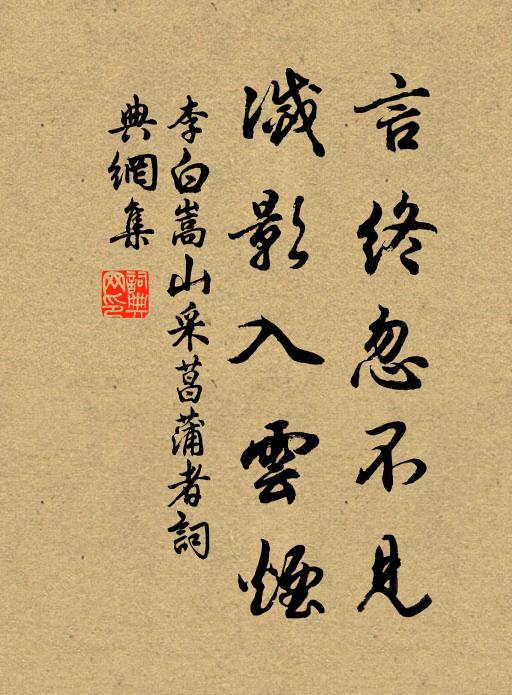 言終忽不見
滅影入雲煙
李白嵩山采菖蒲者詞
典網集
詞典网印